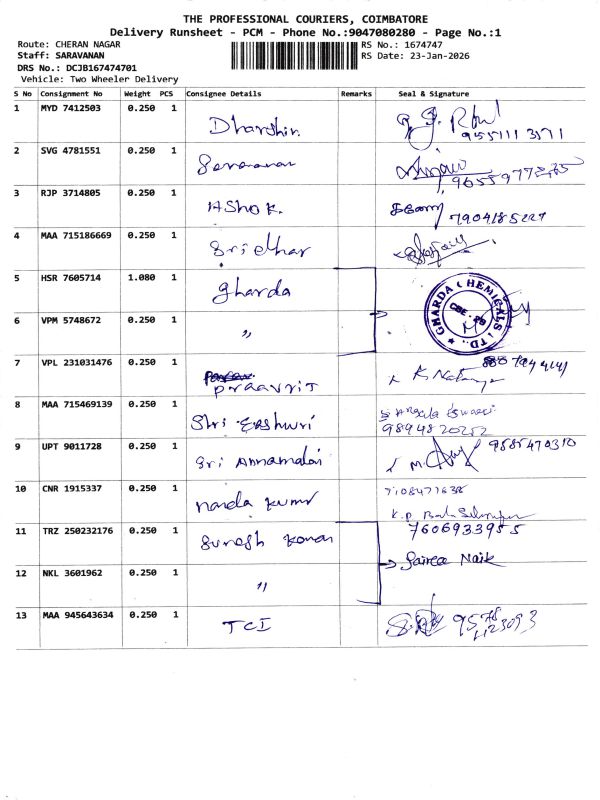 THE PROFESSIONAL COURIERS, COIMBATORE
Delivery Runsheet - PCM - Phone No.:9047080280 - Page No.:1
Route: CHERAN NAGAR
RS No.: 1674747
Staff: SARAVANAN
RS Date: 23-Jan-2026
DRS No.: DCJB167474701
Vehicle: Two Wheeler Delivery
S No Consignment No Weight PCS Consignee Details Remarks Seal & Signature
1 MYD 7412503 0.250 1 Dharshin
2 SVG 4781551 0.250 1 Saravanan
3 RJP 3714805 0.250 1 AShok. 7904185227
4 MAA 715186669 0.250 1 Sridhar
5 HSR 7605714 1.080 1 gharda
GHARDA CHEMICALS LTD.,
CBE - 29
6 VPM 5748672 0.250 1 "
7 VPL 231031476 0.250 1
8 MAA 715469139 0.250 1 Shri Eashwri
9894820252
9 UPT 9011728 0.250 1 Sri Annamalai 9585470310
10 CNR 1915337 0.250 1 nanda kumr
11 TRZ 250232176 0.250 1 Suresh 7606933955
Naik
12 NKL 3601962 0.250 1 "
13 MAA 945643634 0.250 1 TCI